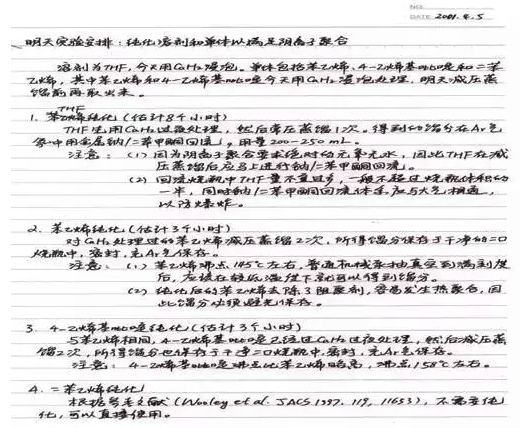 NO.
DATE 2001.4.5
明天实验安排：纯化溶剂和单体以满足阴离子聚合
溶剂为THF，今天用CaH2浸泡。单体包括苯乙烯、4-乙烯基吡啶和二苯
乙烯，其中苯乙烯和4-乙烯基吡啶是今天用CaH2浸泡处理，明天减压蒸
馏前再取出来。
1. THF纯化（估计8个小时）
THF先用CaH2过夜处理，然后常压蒸馏1次。得到的馏分在Ar气
氛中用金属钠/二苯甲酮回流，用量200-250 mL。
注意：（1）因为阴离子聚合要求绝对的无氧无水，因此THF在减
压蒸馏后应马上进行钠/二苯甲酮回流。
（2）回流烧瓶中THF量不宜过多，一般不超过烧瓶体积的
一半，同时钠/二苯甲酮回流体系应与大气相通，
以防爆炸。
2. 苯乙烯纯化（估计3个小时）
对CaH2处理过的苯乙烯减压蒸馏2次，所得馏分保存于干净的二口
烧瓶中，密封，充Ar气保存。
注意：（1）苯乙烯沸点145℃左右，普通机械泵抽真空到满刻度
后，应该在较低温度下就可以得到馏分。
（2）纯化后的苯乙烯去除了阻聚剂，容易发生热聚合，因
此馏分必须避光保存。
3. 4-乙烯基吡啶纯化（估计3个小时）
与苯乙烯相同，4-乙烯基吡啶已经过CaH2过夜处理，然后减压蒸
馏2次，所得馏分也保存于干净二口烧瓶中，密封，充Ar气保存。
注意：4-乙烯基吡啶沸点比苯乙烯略高，沸点158℃左右。
4. 二苯乙烯纯化
根据参考文献（Wooley et al. JACS 1997, 119, 11653），不需要纯
化，可以直接使用。